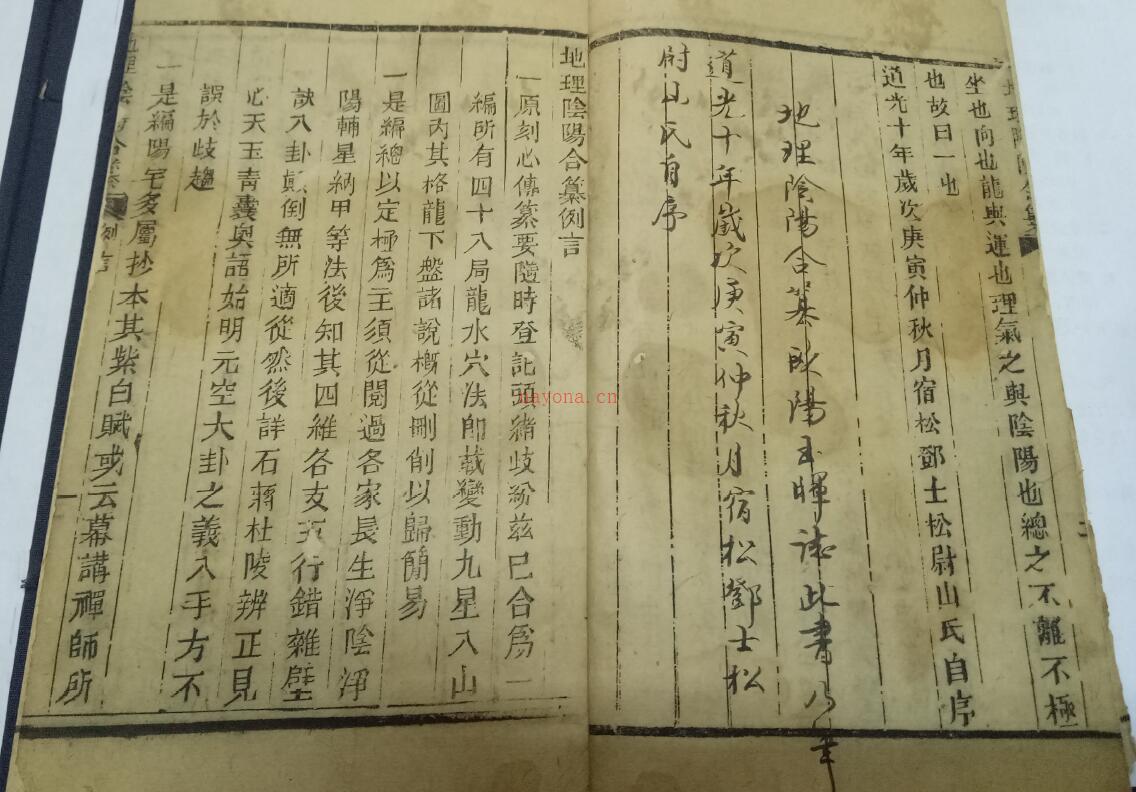 坐也向也龍與運也理氣之與陰陽也總之不離不極
也故曰一也
道光十年歲次庚寅仲秋月宿松鄧士松尉山氏自序
地理陰陽合纂歐陽玉暉誌此書乃
道光十年歲次庚寅仲秋月宿松鄧士松
尉山氏自序
地理陰陽合纂例言
一原刻心傳纂要隨時登記頭緒歧紛茲已合為一
編所有四十八局龍水穴法即載變動九星入山
圖內其格龍下盤諸說槪從刪削以歸簡易
一是編總以定極爲主須從閱過各家長生淨陰淨
陽輔星納甲等法後知其四維各支五行錯雜壁
訣八卦顛倒無所適從然後詳石蔣杜陵辨正見
心天玉靑囊奥語始明元空大卦之義入手方不
誤於歧趨
一是編陽宅多屬抄本其紫白賦或云幕講禪師所
nayona.cn